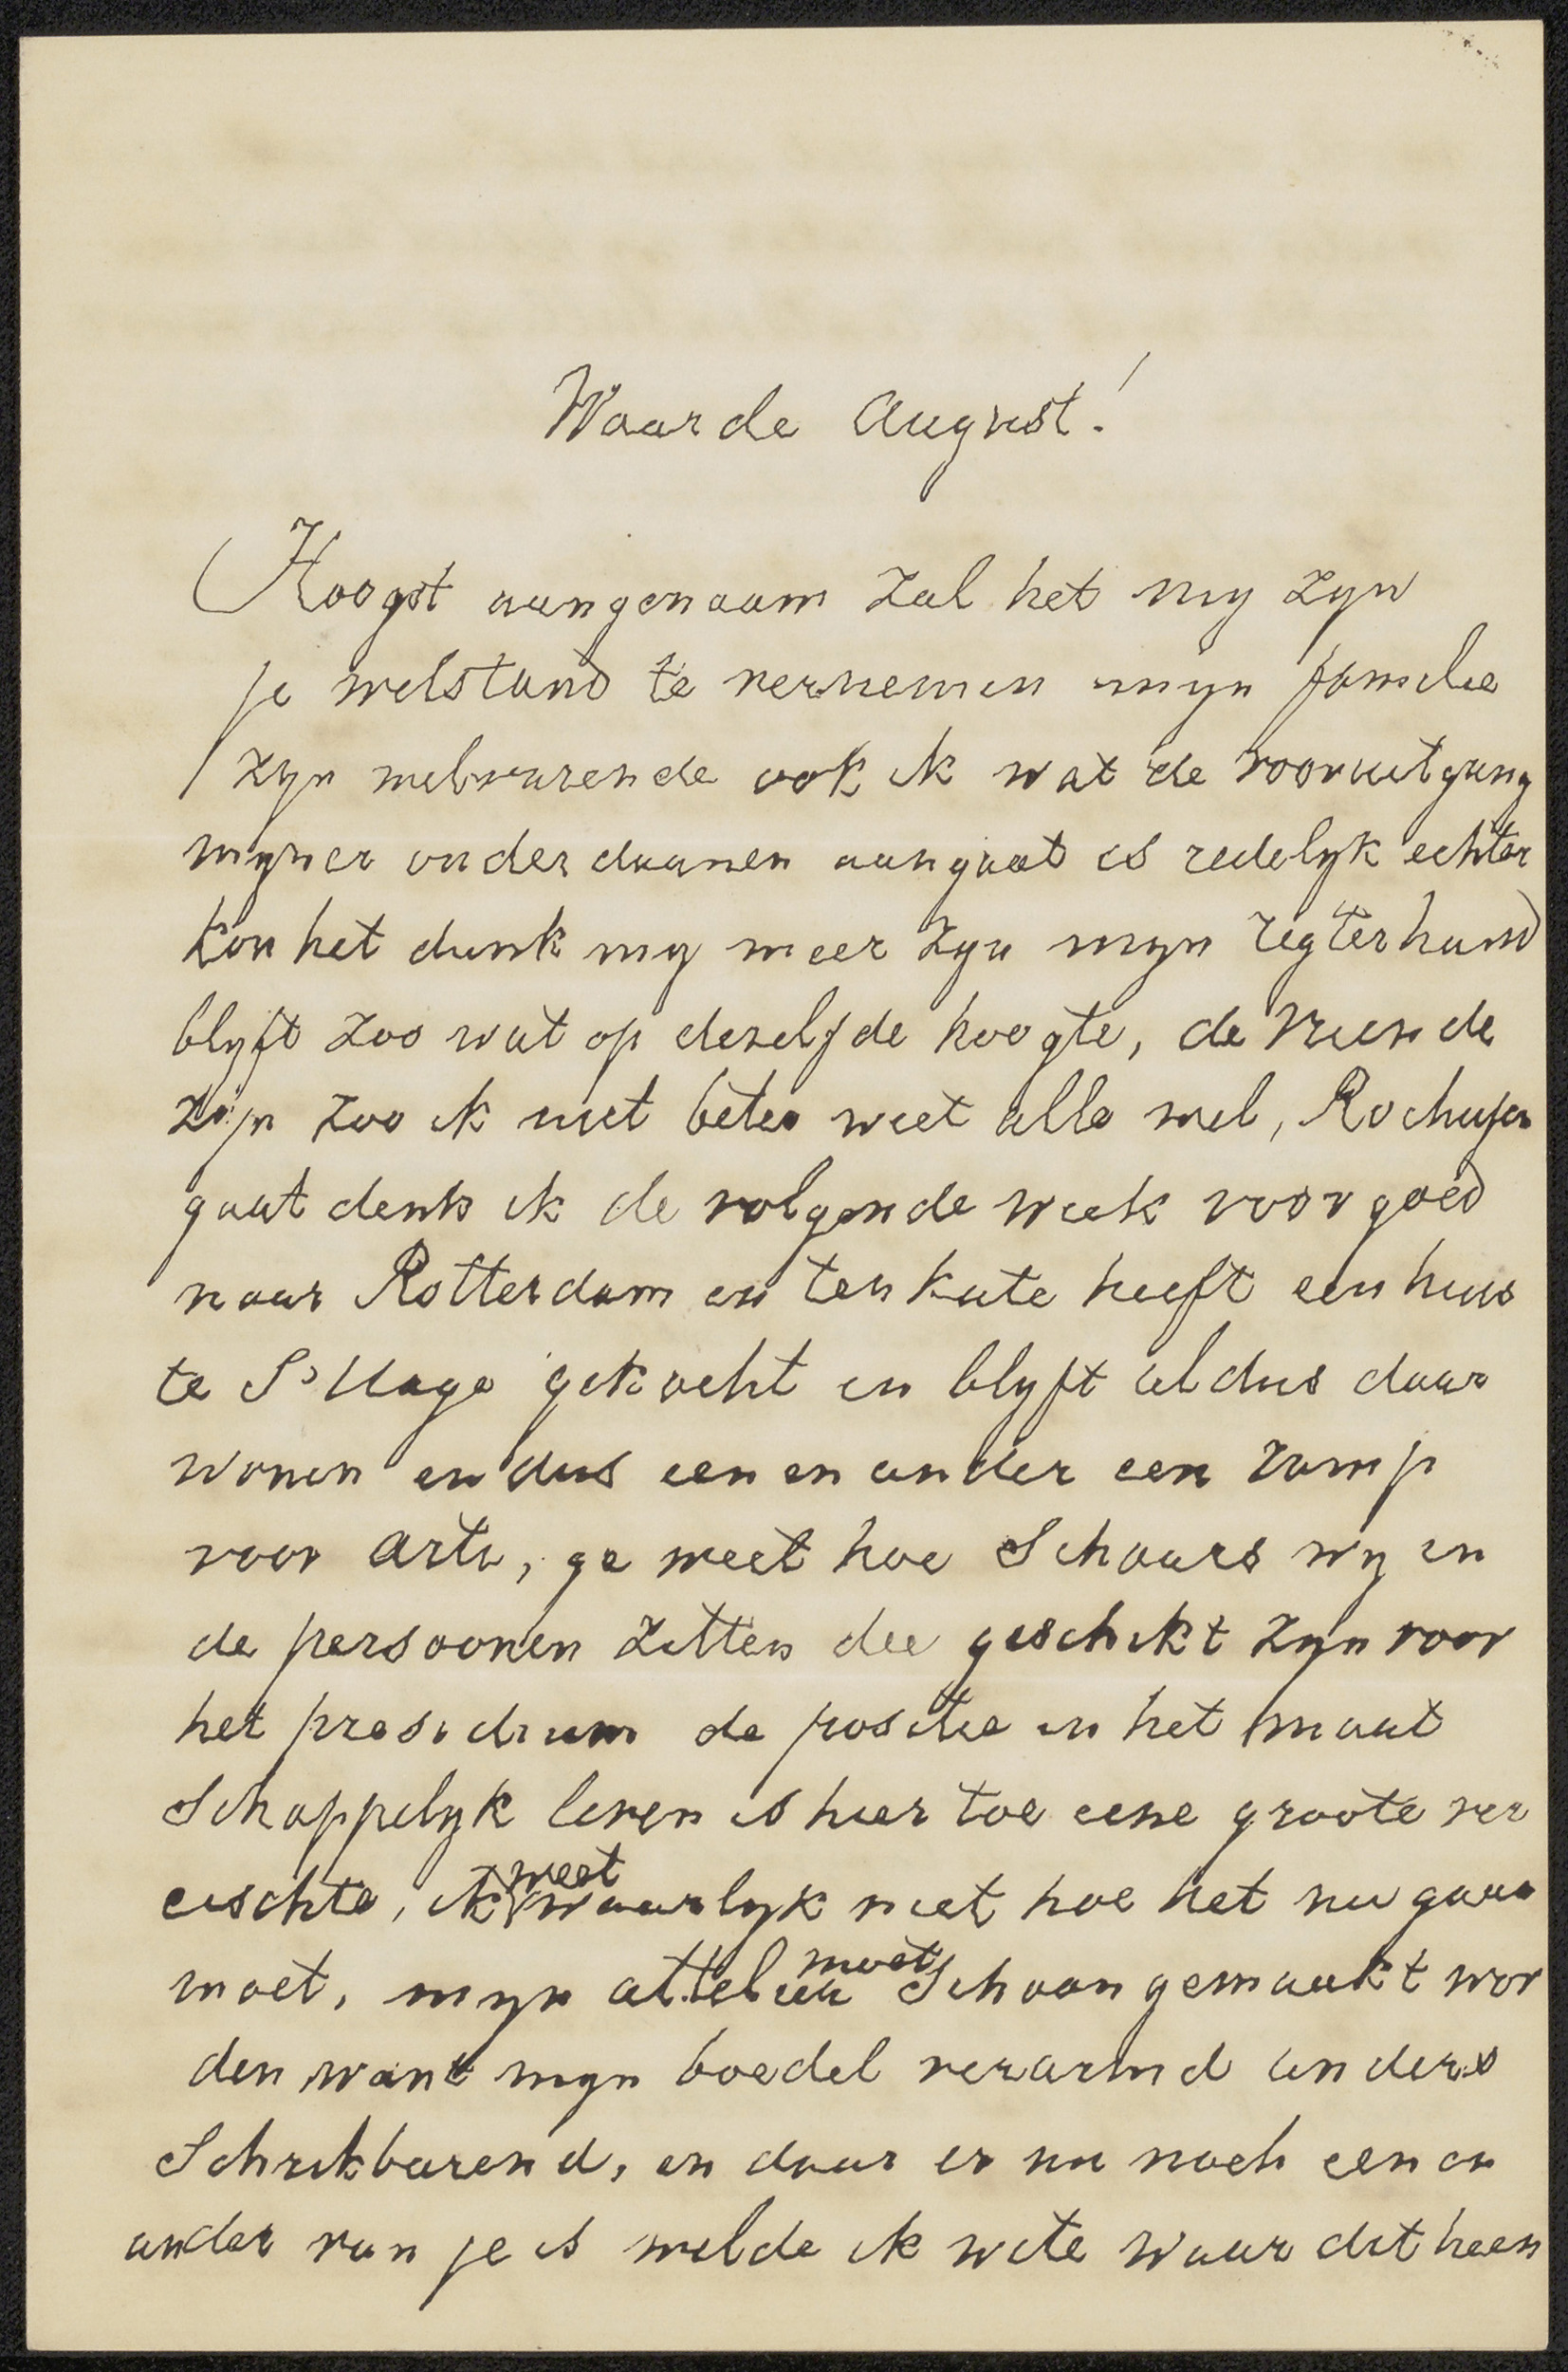 Waarde August!
Hoogst aangenaam zal het my zyn
je welstand te vernemen myn familie
zyn welvarende ook ik wat de vooruitgang
myner onderdaanen aangaat is redelyk echter
kon het dunk my meer zyn myn regterhand
blyft zoo wat op deselfde hoogte, de vriende
zijn zoo ik niet beter weet alle wel, Rochusen
gaat denk ik de volgende week voor goed
naar Rotterdam en ten Kate heeft een huis
te S'Hage gekocht en blyft aldus daar
wonen en dus een en ander een ramp
voor Arti, ge weet hoe Schaars wy in
de persoonen zitten die geschikt zyn voor
het presidium de positie in het maat
Schappelyk leven is hier toe eene groote ver
eischte, ik weet waarlyk niet hoe het nu gaan
moet, myn attelier moet Schoongemaakt wor
den want myn boedel verarmd anders
Schrikbarend, en daar er nu noch een en
ander van je is wilde ik wete waar dit heen